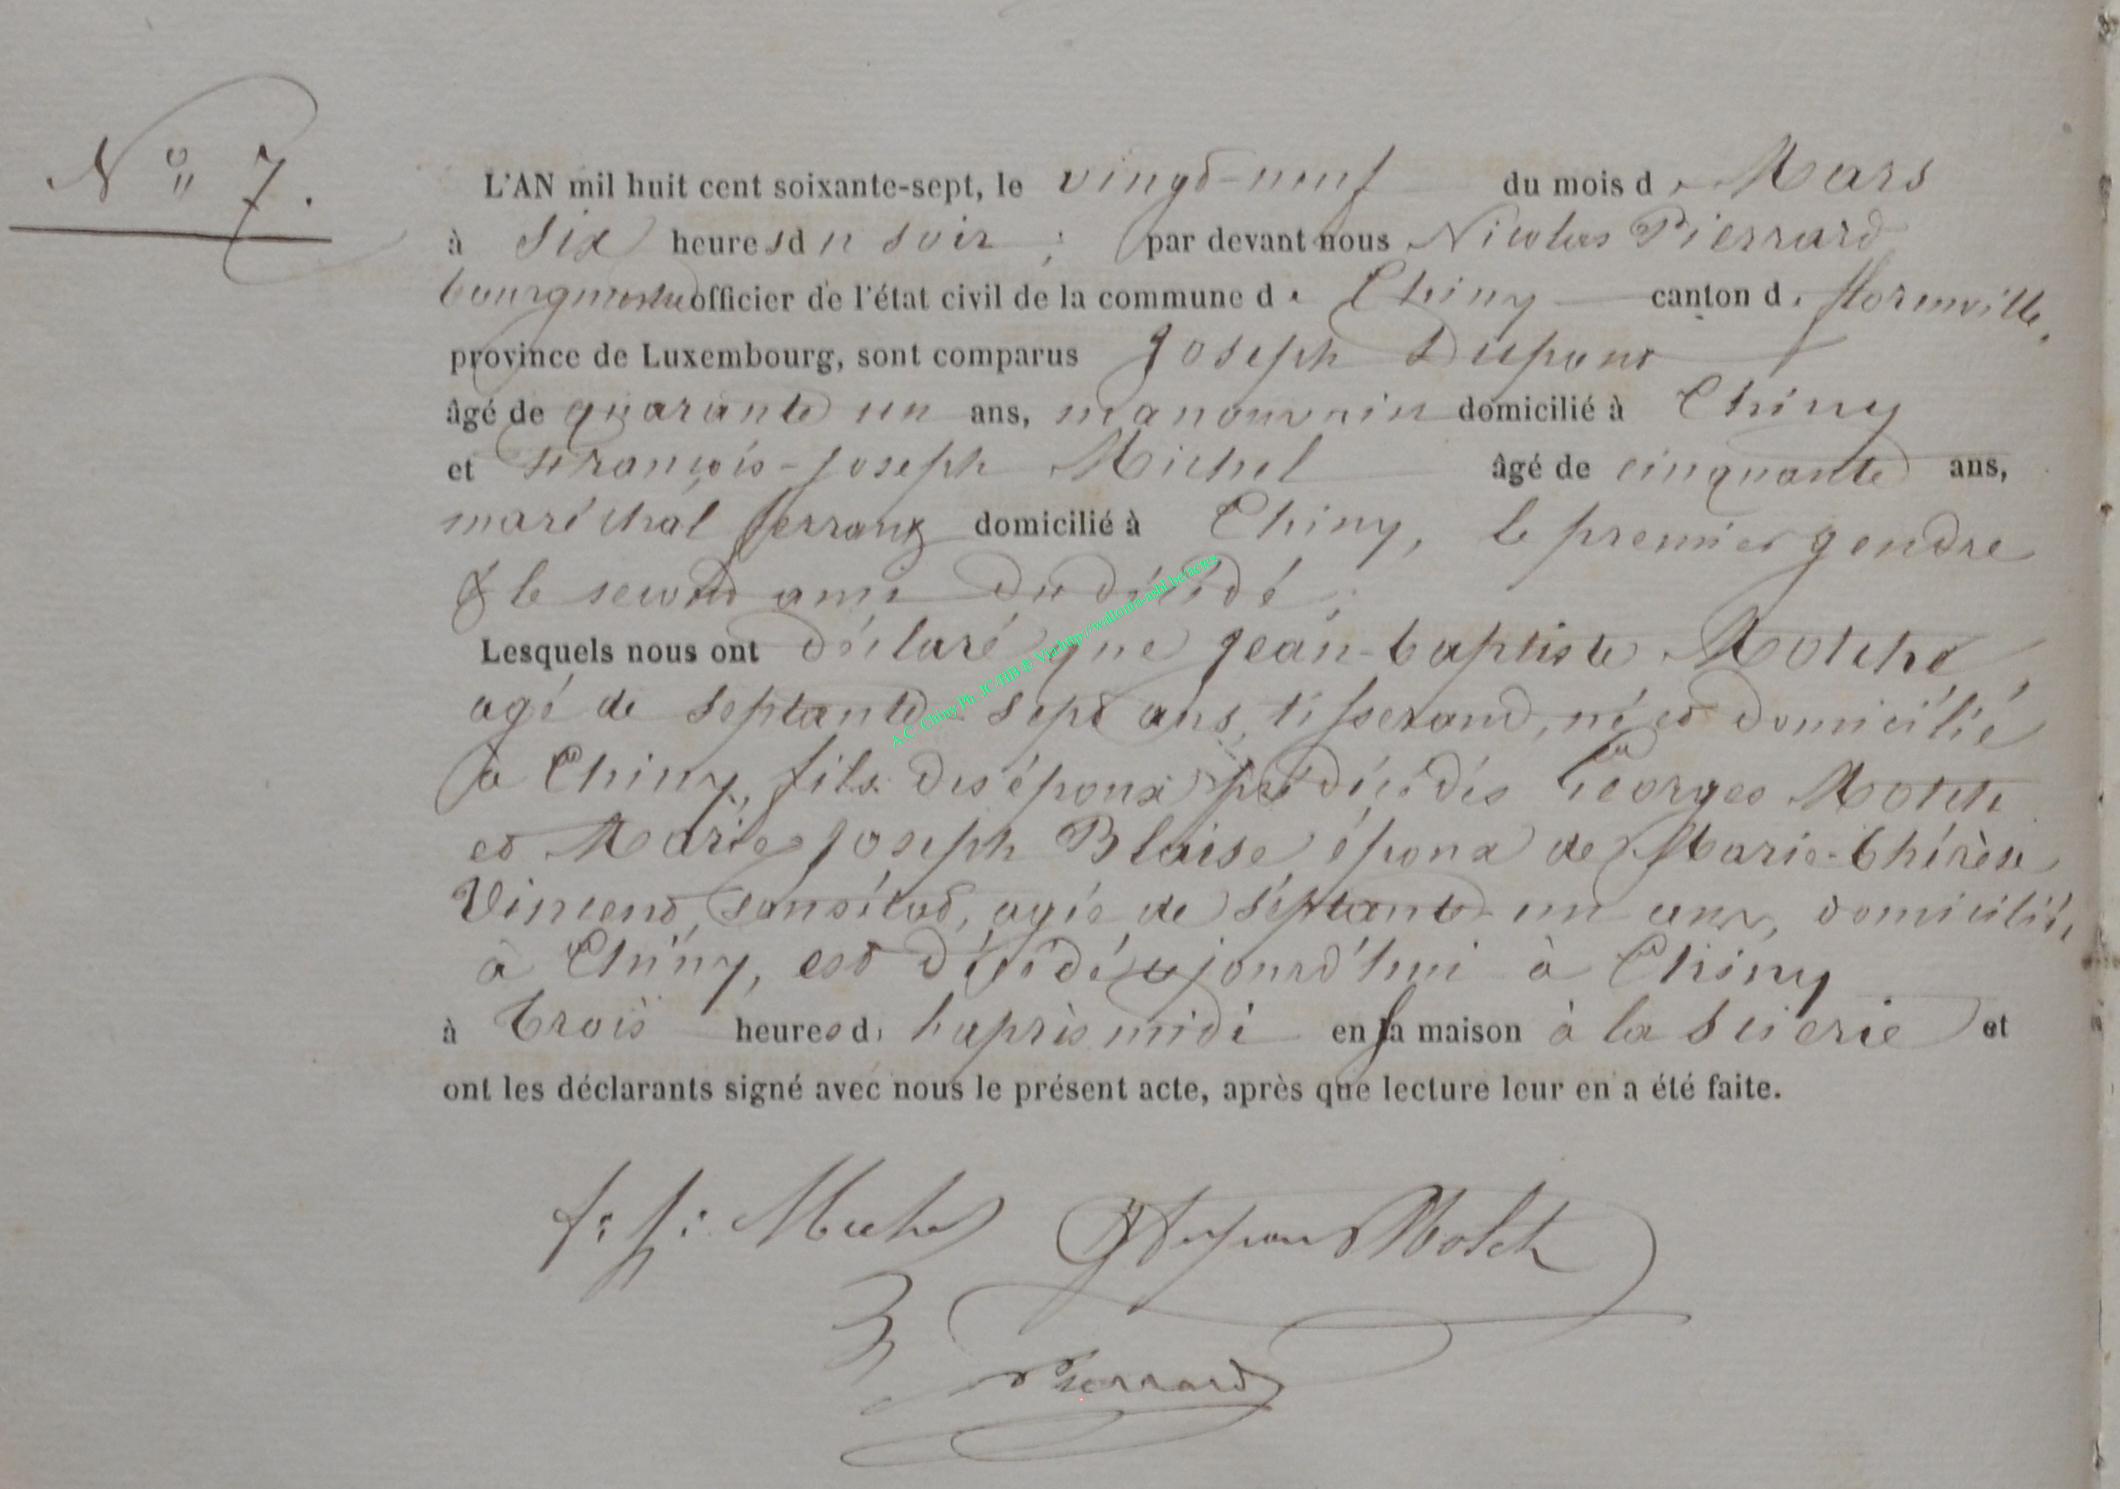 N° 7.
L'AN mil huit cent soixante-sept, le vingt-neuf du mois de Mars
à six heures du soir ; par devant nous Nicolas Pierrard
bourgmestre officier de l'état civil de la commune de Chiny canton de florenville,
province de Luxembourg, sont comparus Joseph Dupont
âgé de quarante un ans, manouvrier domicilié à Chiny
et François-Joseph Michel âgé de cinquante ans,
maréchal ferrant domicilié à Chiny, le premier gendre
& le second ami du décédé ;
Lesquels nous ont déclaré que Jean-baptiste Motche
agé de septante-sept ans, tisserand, né et domicilié
à Chiny, fils des époux prédécédés Georges Motch
et Marie Joseph Blaise époux de Marie-thérèse
Vincent, sans état, agée de septante un ans, domiciliée
à Chiny, est décédé aujourd'hui à Chiny
à trois heures de l'après midi en sa maison à la scierie et
ont les déclarants signé avec nous le présent acte, après que lecture leur en a été faite.
f: j: Michel J Dupont Motch
Pierrard
A.C. Chiny Ph. JC-HB & Via http://wallonia-asbl.be